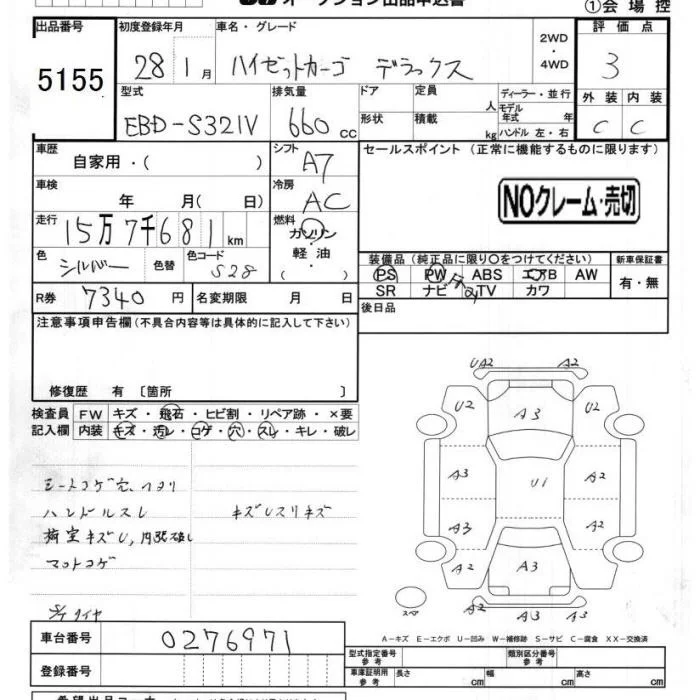 ①会場控
出品番号 5155
初度登録年月 28 1月
車名・グレード ハイゼットカーゴ デラックス
2WD・4WD
評価点 3
外装 C 内装 C
型式 EBD-S321V
排気量 660cc
ドア 形状
定員 人 積載 kg
ディーラー・並行
モデル年式 年
ハンドル 左・右
車歴 自家用・( )
シフト A7
セールスポイント (正常に機能するものに限ります)
NOクレーム・売切
車検 年 月( 日)
冷房 AC
走行 15万7千681km
燃料 ガソリン・軽油・( )
色 シルバー 色替 色コード S28
装備品 (純正品に限り○をつけてください)
PS PW ABS エアB AW
SR ナビ TV カワ
新車保証書 有・無
R券 7340円 名変期限 月 日
後日品
注意事項申告欄(不具合内容等は具体的に記入して下さい)
修復歴 有〔箇所 〕
検査員記入欄
FW キズ・飛石・ヒビ割・リペア跡・×要
内装 キズ・汚レ・コゲ・穴・スレ・キレ・破レ
シートコゲ穴、ヘタリ
ハンドルスレ
キズUスリキズ
荷室キズU、内張破レ
マットコゲ
S/Tタイヤ
UA2 A2
U2 A3 U2
A3 U1 A2
A3 A2
A3
A2 A3 A3
スペア
A-キズ E-エクボ U-凹み W-補修跡 S-サビ C-腐食 XX-交換済
車台番号 0276971
登録番号
型式指定番号 参考
類別区分番号 参考
車庫証明用 参考 長さ cm 幅 cm 高さ cm